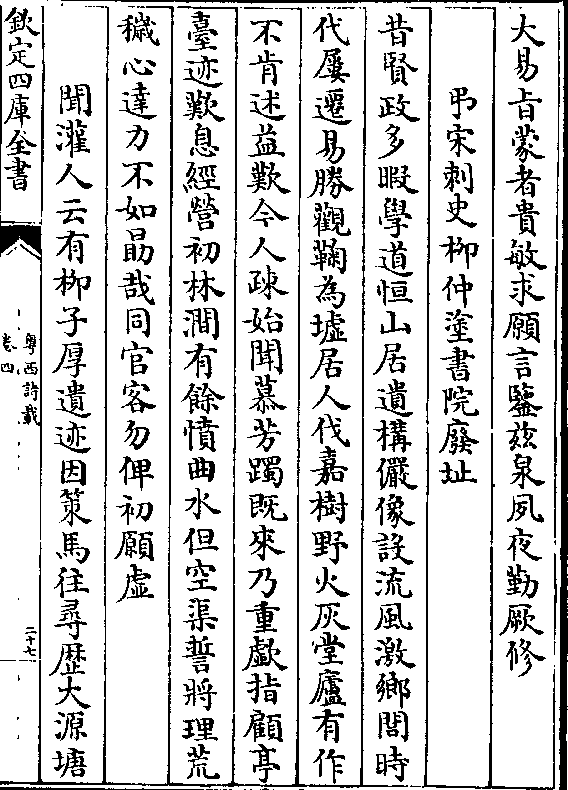 大易㫖蒙者貴敏求願言鑒兹泉夙夜勤厥修
弔宋刺史柳仲塗書院廢址
昔賢政多暇學道恒山居遺構儼像設流風激鄉閭時
代屢遷易勝觀鞠為墟居人伐嘉樹野火灰堂廬有作
不肯述益歎今人疎始聞慕芳躅既來乃重歔指顧亭
臺迹歎息經營初林澗有餘憤曲水但空渠誓將理荒
穢心達力不如勗哉同官客勿俾初願虛
聞灌人云有柳子厚遺迹因策馬往尋歴大源塘
欽定四庫全書
粤西詩載
卷四
二十七